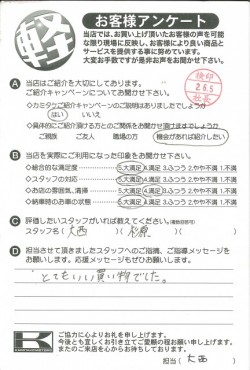 軽
お客様アンケート
当店では、お買い上げ頂いたお客様の声を可能な
限り現場に反映し、お客様により良い商品と
サービスを提供する事に努めています。
大変お手数ですが是非お声をお聞かせ下さい。
検印
2 6.5
A 当店はご紹介を大切にしております。
ご紹介キャンペーンについてお聞かせ下さい。
はい いいえ
ご親族 ご友人 職場の方 機会があれば紹介したい
B 当店を実際にご利用になった印象をお聞かせ下さい。
総合的な満足度 5.大満足 4.満足 3.ふつう 2.やや不満 1.不満
スタッフの対応 5.大満足 4.満足 3.ふつう 2.やや不満 1.不満
お店の雰囲気、清掃 5.大満足 4.満足 3.ふつう 2.やや不満 1.不満
納車時のお車の状態 5.大満足 4.満足 3.ふつう 2.やや不満 1.不満
C 評価したいスタッフがいれば教えてください。(複数回答可)
スタッフ名( 大西 )( 杉原 )( )
D 担当させて頂きましたスタッフへのご指摘、ご指導メッセージを
お願いします。応援メッセージもぜひお願いします。
とてもいい買い物でした。
K
ご協力に心よりお礼を申し上げます。
今後とも宜しくお引き立てご愛顧の程お願い申し上げます。
またのご来店を心からお待ちしております。
担当( 大西 )